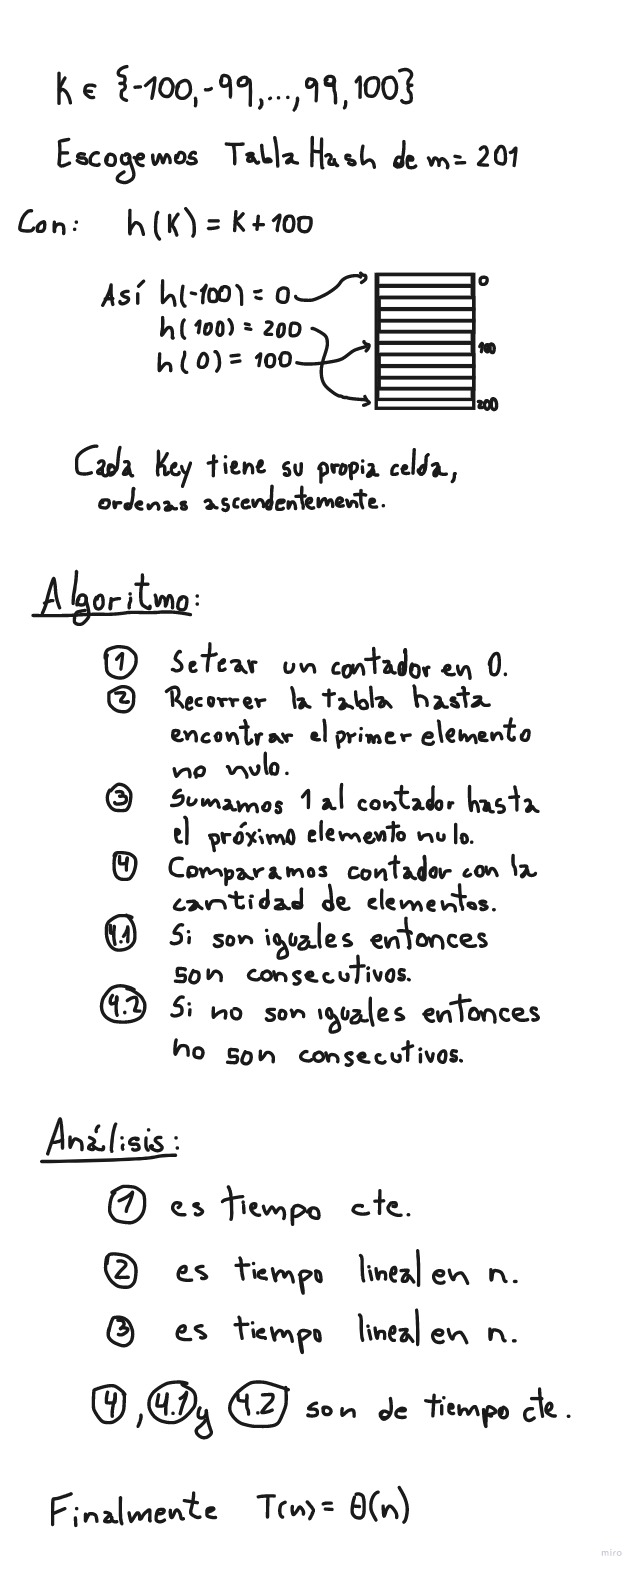 K ∈ {-100,-99,...,99,100}
Escogemos Tabla Hash de m= 201
Con: h(K) = K+100
Así h(-100) = 0
h(100) = 200
h(0) = 100
0
100
200
Cada Key tiene su propia celda,
ordenas ascendentemente.
Algoritmo:
1 Setear un contador en 0.
2 Recorrer la tabla hasta
encontrar el primer elemento
no nulo.
3 Sumamos 1 al contador hasta
el próximo elemento nulo.
4 Comparamos contador con la
cantidad de elementos.
4.1 Si son iguales entonces
son consecutivos.
4.2 Si no son iguales entonces
no son consecutivos.
Análisis:
1 es tiempo cte.
2 es tiempo lineal en n.
3 es tiempo lineal en n.
4, 4.1 y 4.2 son de tiempo cte.
Finalmente T(n) = θ(n)
miro